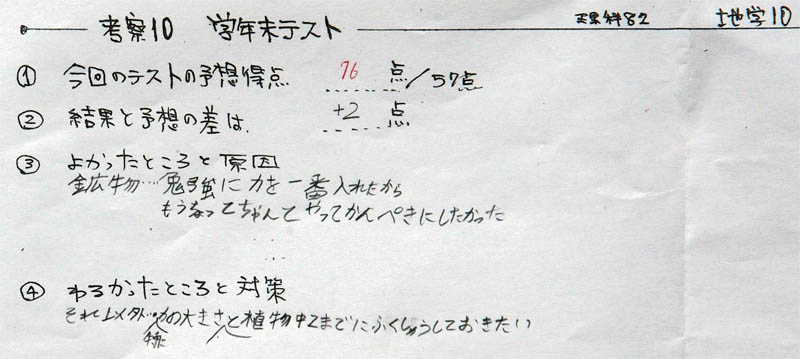 考察10 学年末テスト 理科82 地学10
① 今回のテストの予想得点 76 点/57点
② 結果と予想の差は +2 点
③ よかったところと原因
鉱物…勉強に力を一番入れたから
もうなってちゃんとやってかんぺきにしたかった
④ わるかったところと対策
それ以外の大きさと植物中2までにふくしゅうしておきたい
特に